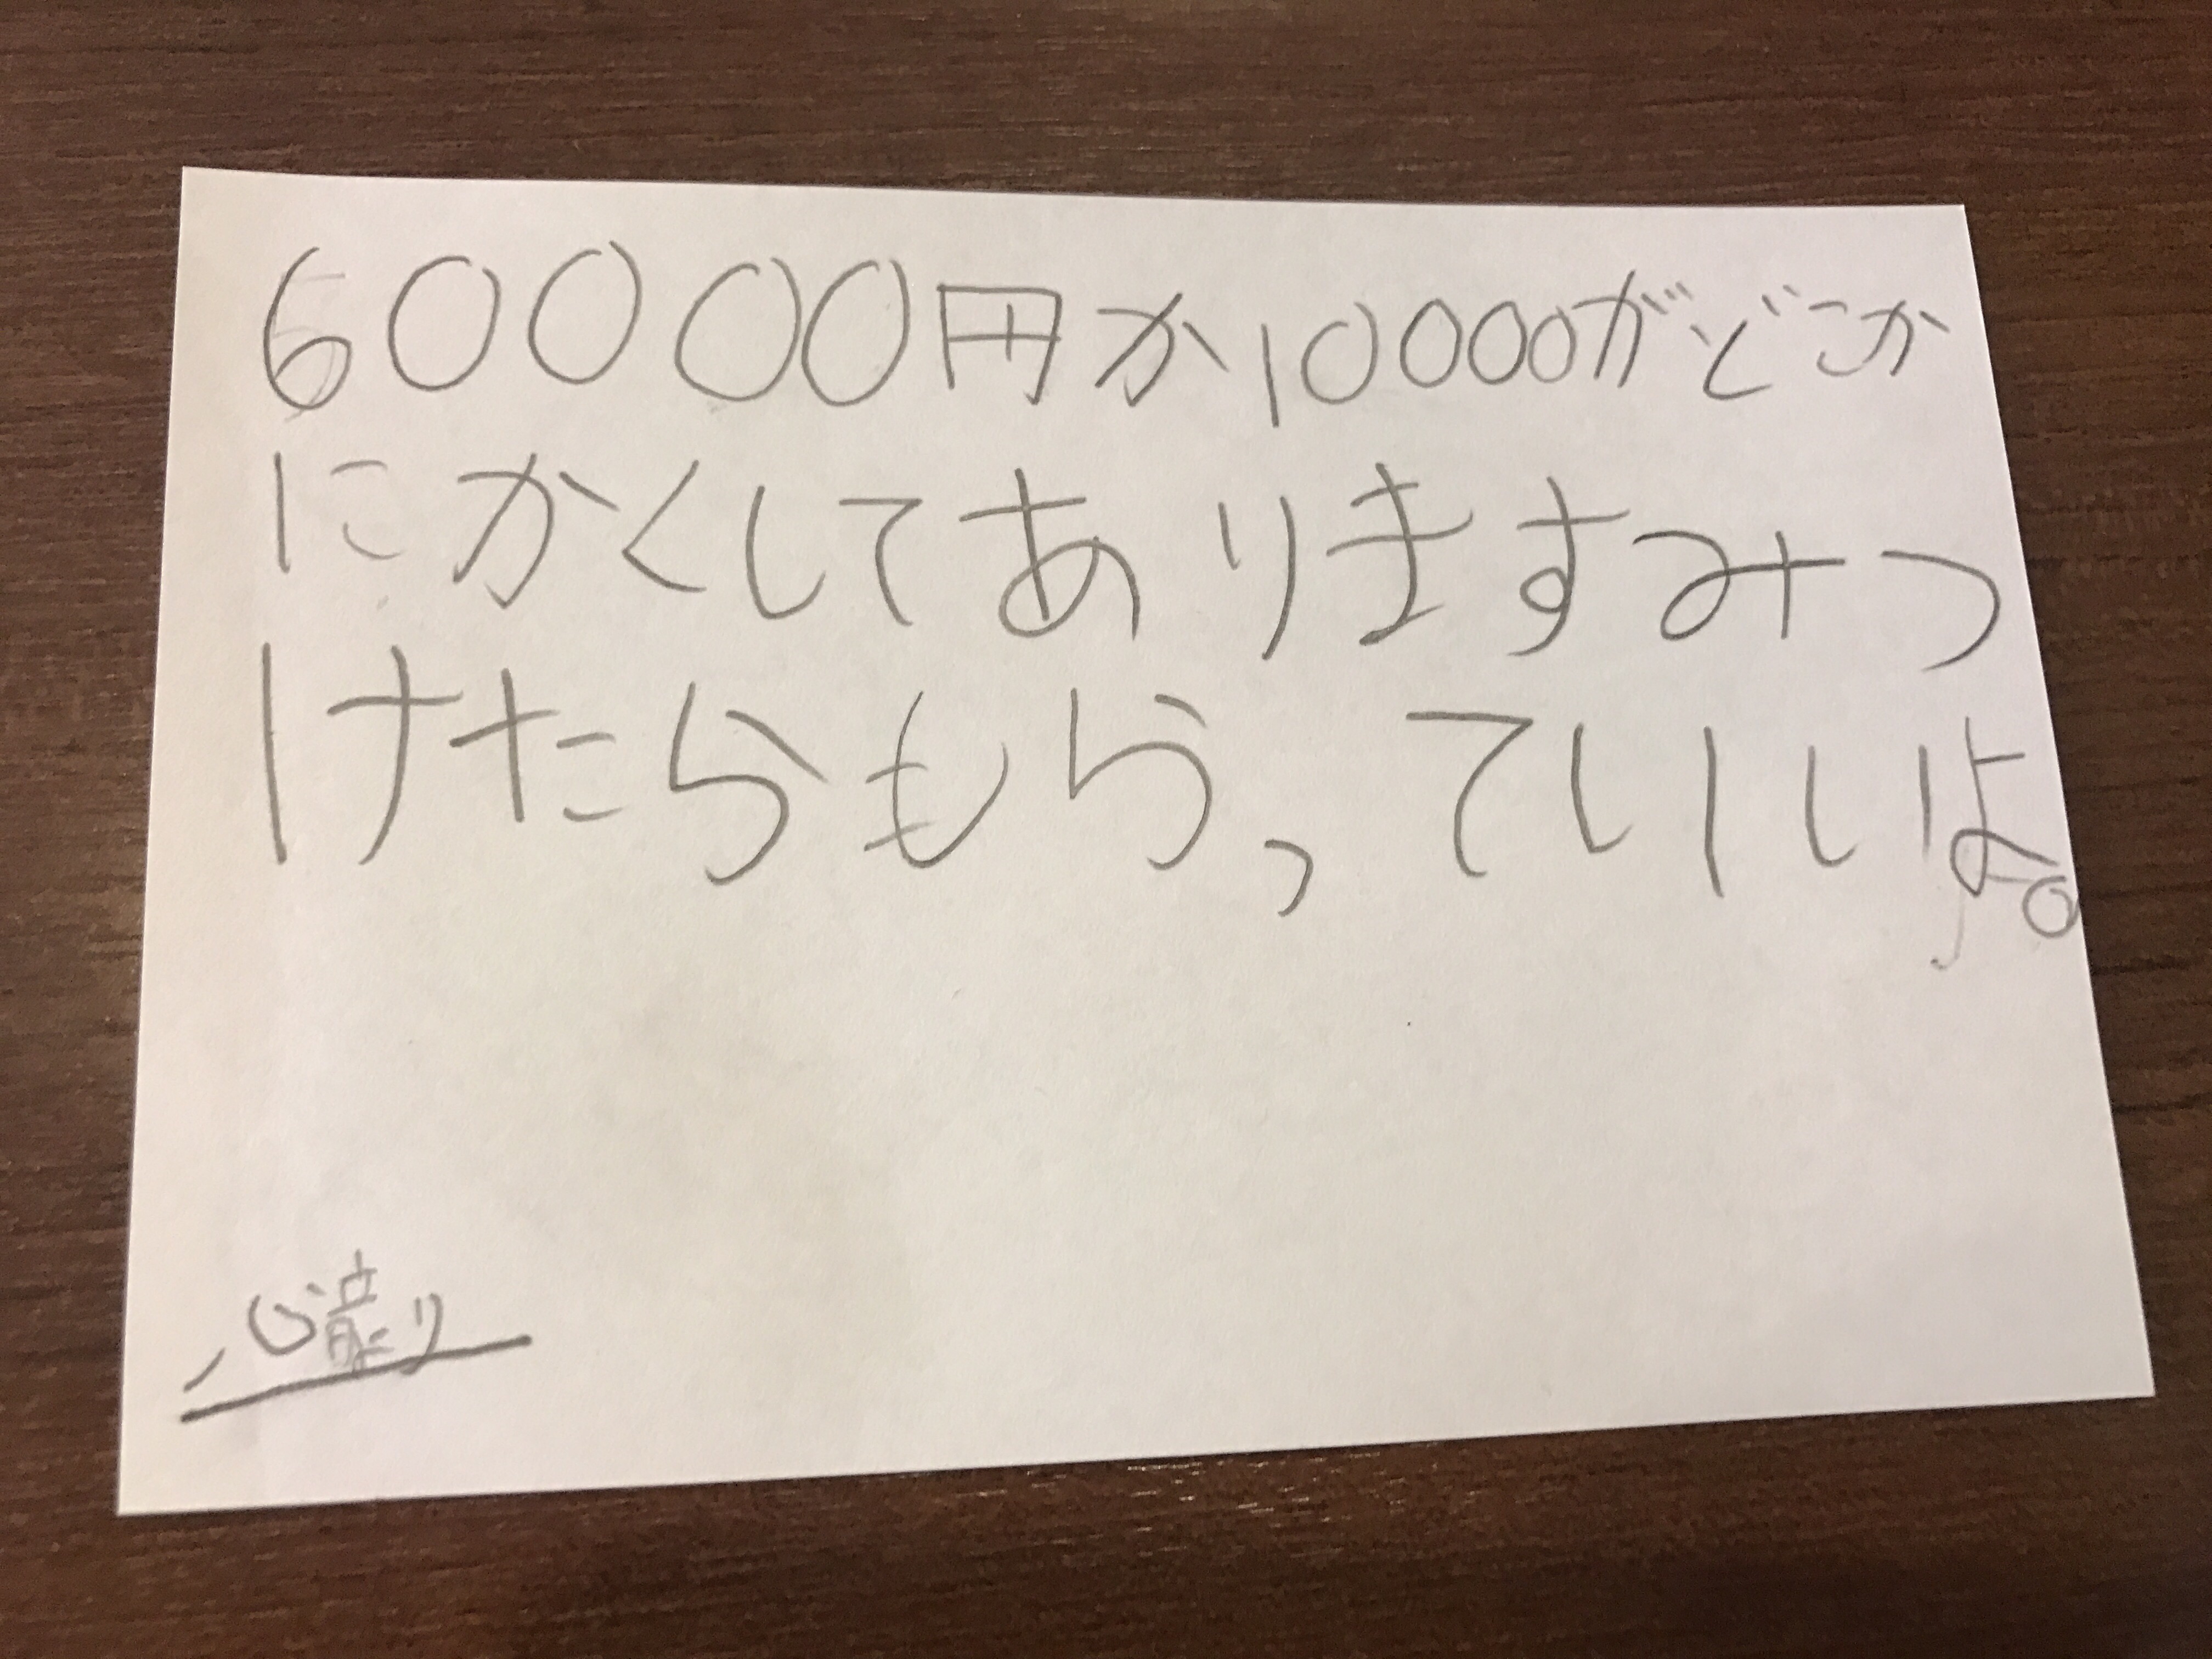 60000円か10000がどこか
にかくしてありますみつ
けたらもらっていいよ。
心